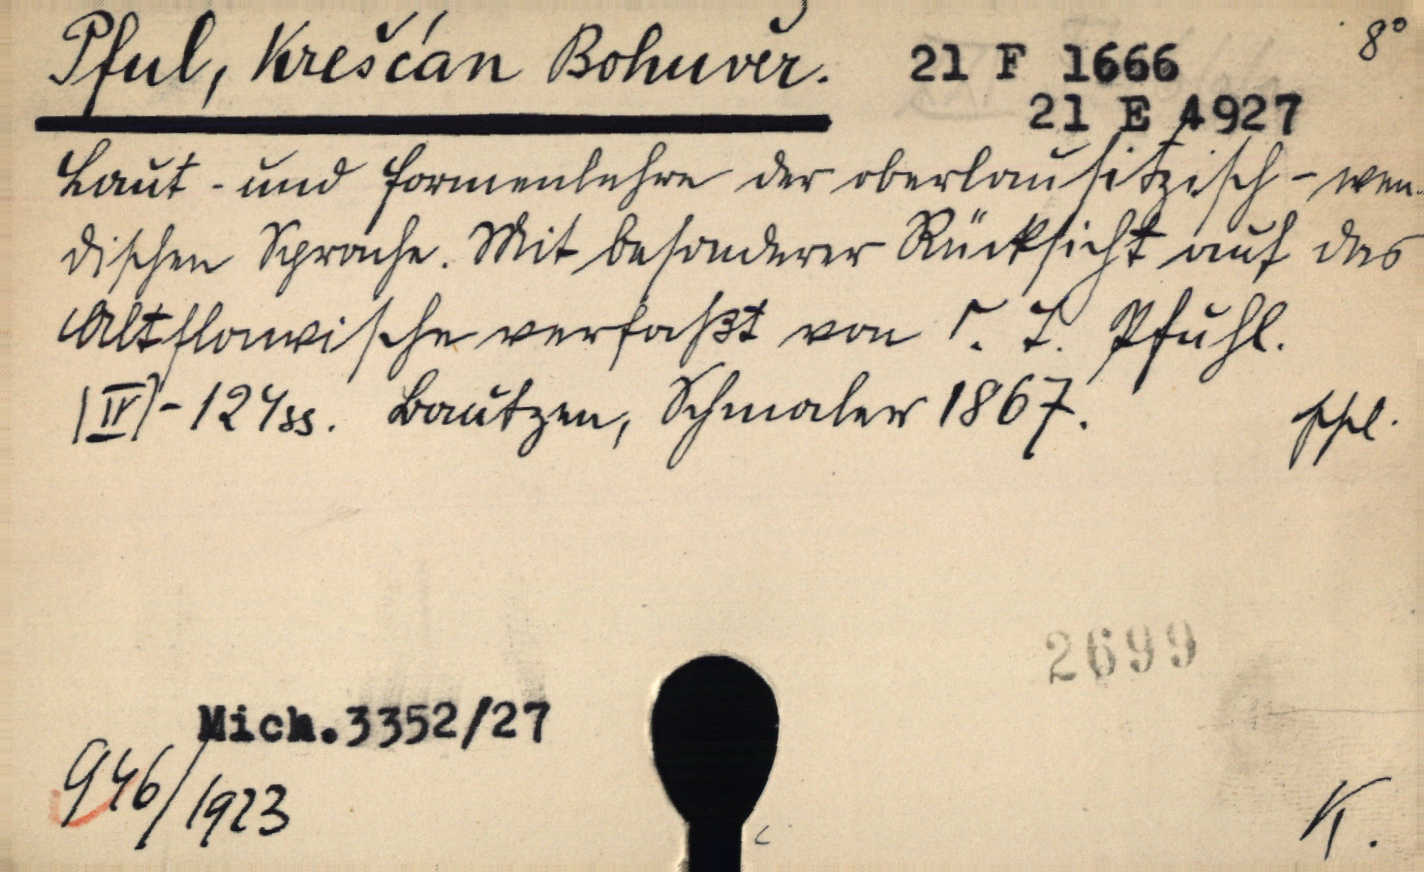 Pful, Kreščan Bohuvěr.
8°
21 F 1666
21 E 4927
Laut- und Formenlehre der oberlausitzisch-wen-
dischen Sprache. Mit besonderer Rücksicht auf das
Altslawische verfaßt von C. T. Pfuhl.
(IV)-124 ss. Bautzen, Schmaler 1867.
2699
Mich.3352/27
946/1923
K.